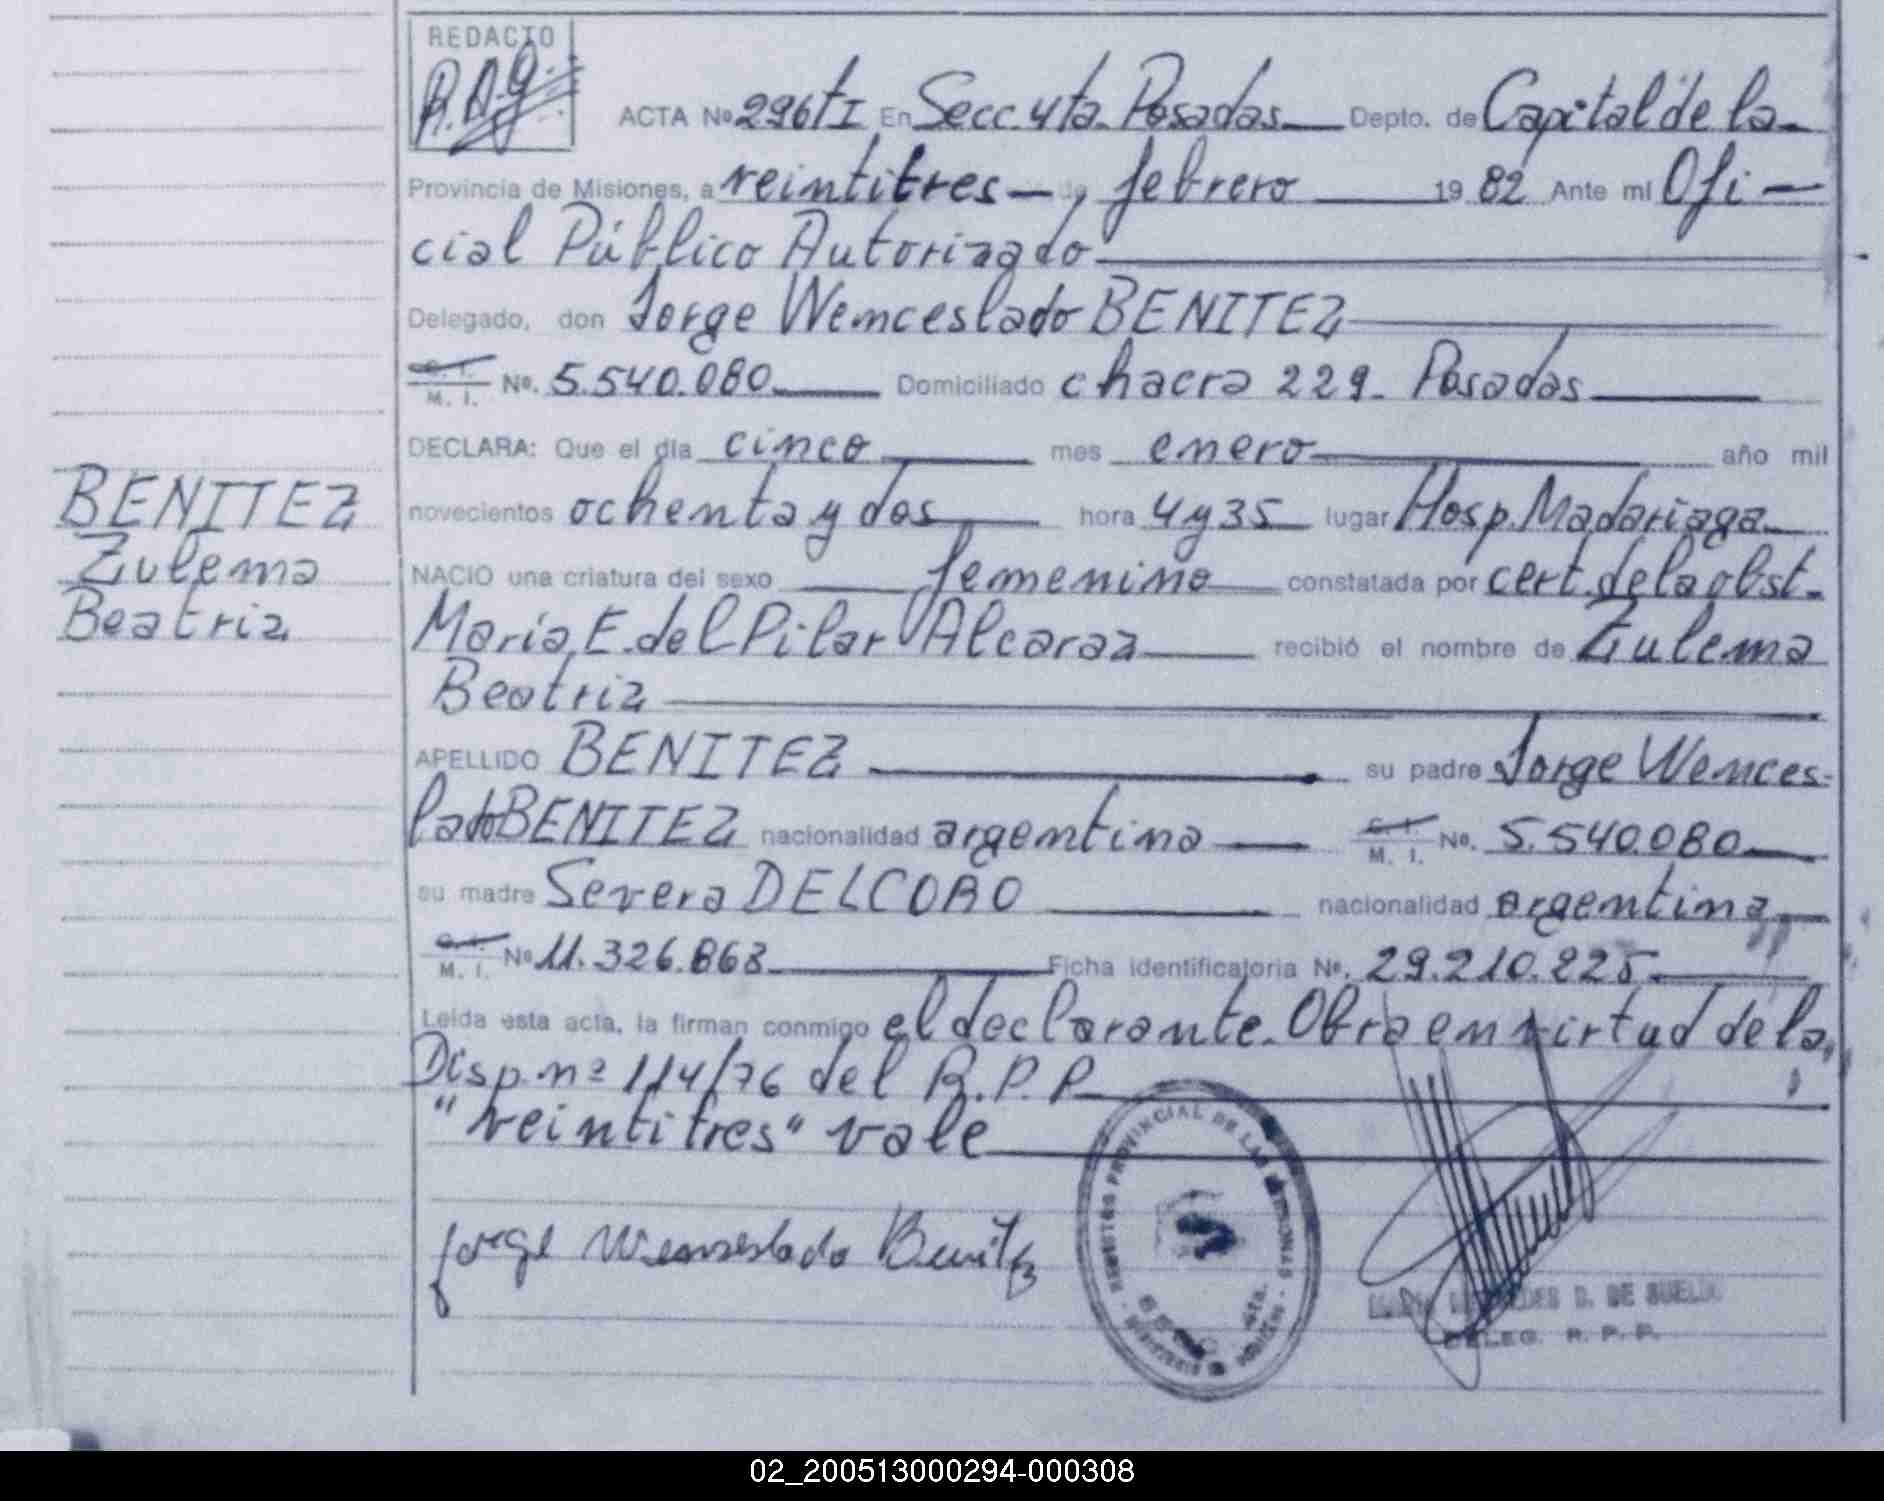 REDACTO
ACTA Nº 296 tI En Secc. 4ta. Posadas Depto. de Capital de la
Provincia de Misiones, a veintitres de febrero 1982 Ante mí Ofi-
cial Público Autorizado
Delegado, don Jorge Wenceslado BENITEZ
C. I.
M. I. No. 5.540.080 Domiciliado chacra 229. Posadas
DECLARA: Que el día cinco mes enero año mil
novecientos ochenta y dos hora 4 y 35 lugar Hosp. Madariaga
NACIO una criatura del sexo femenino constatada por cert. de la obst.
María E. del Pilar Alcaraz recibió el nombre de Zulema
Beatriz
APELLIDO BENITEZ su padre Jorge Wences-
lado BENITEZ nacionalidad argentina C. I.
M. I. No. 5.540.080
su madre Severa DELCORO nacionalidad argentina
C. I.
M. I. No 11.326.868 Ficha identificatoria No. 29.210.225
Leída esta acta, la firman conmigo el declarante. Obra en virtud de la
Disp. nº 114/76 del R.P.P.
"veintitres" vale
BENITEZ
Zulema
Beatriz
Jorge Wenseslado Benitez
PROVINCIAL DE LAS PERSONAS
4ta.
DE SUELDO
DELEG. R. P. P.
02_200513000294-000308